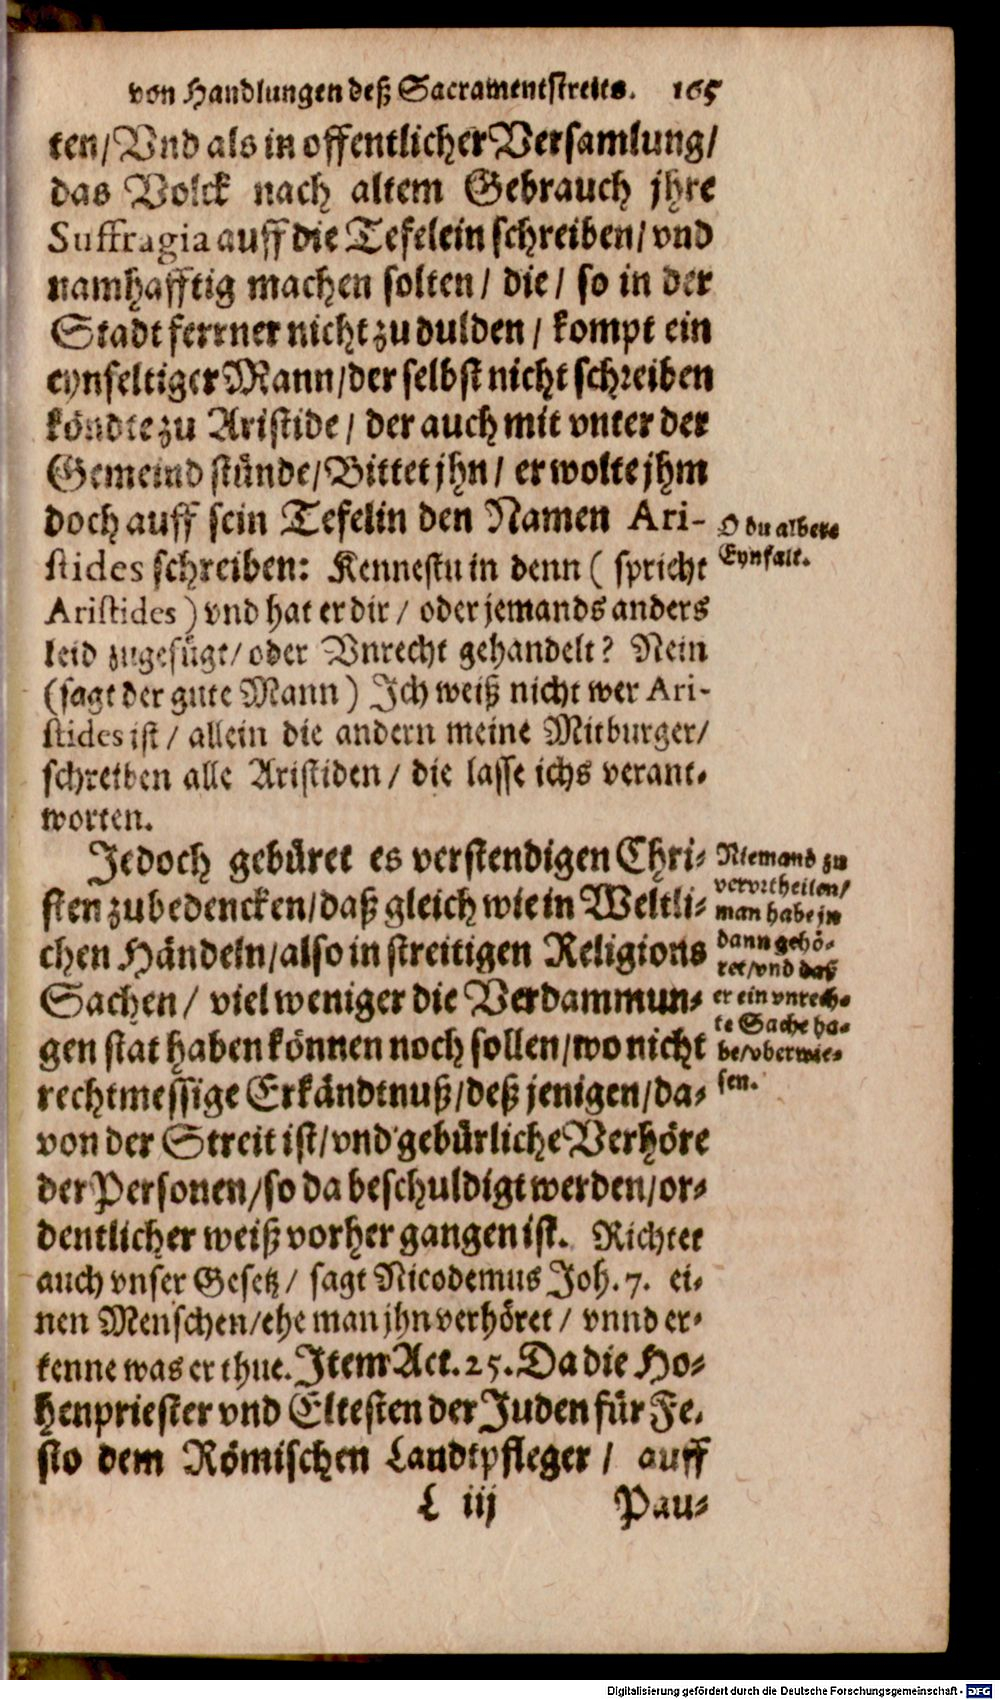 von Handlungen deß Sacramentstreits. 165
ten/ Vnd als in offentlicher Versamlung/
das Volck nach altem Gebrauch jhre
Suffragia auff die Tefelein schreiben/ vnd
namhafftig machen solten/ die/ so in der
Stadt ferrner nicht zu dulden/ kompt ein
eynfeltiger Mann/ der selbst nicht schreiben
köndte zu Aristide/ der auch mit vnter der
Gemeind stünde/ Bittet jhn/ er wolte jhm
doch auff sein Tefelin den Namen Ari-
stides schreiben: Kennestu in denn (spricht
Aristides) vnd hat er dir/ oder jemands anders
leid zugefügt/ oder Vnrecht gehandelt? Nein
(sagt der gute Mann) Ich weiß nicht wer Ari-
stides ist/ allein die andern meine Mitburger/
schreiben alle Aristiden/ die lasse ichs verant-
worten.
O du albere
Eynfalt.
Jedoch gebüret es verstendigen Chri-
sten zubedencken/ daß gleich wie in Weltli-
chen Händeln/ also in streitigen Religions
Sachen/ viel weniger die Verdammun-
gen stat haben können noch sollen/ wo nicht
rechtmessige Erkändtnuß/ deß jenigen/ da-
von der Streit ist/ vnd gebürliche Verhöre
der Personen/ so da beschuldigt werden/ or-
dentlicher weiß vorher gangen ist. Richtet
auch vnser Gesetz/ sagt Nicodemus Joh. 7. ei-
nen Menschen/ ehe man jhn verhöret/ vnnd er-
kenne was er thue. Item Act. 25. Da die Ho-
henpriester vnd Eltesten der Juden für Fe-
sto dem Römischen Landtpfleger/ auff
Niemand zu
vervrtheilen/
man habe jn
dann gehö-
ret/ vnd daß
er ein vnrech-
te Sache ha-
be/ vberwie-
sen.
L iij Pau-
Digitalisierung gefördert durch die Deutsche Forschungsgemeinschaft - DFG